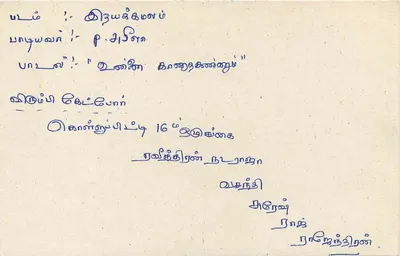 படம் :- இதயக்கமலம்
பாடியவர் :- P. சுசீலா
பாடல் :- "உன்னை காணாதகண்ணும்"
விரும்பி கேட்போர்
கொள்ளுப்பிட்டி 16ம் ஒழுங்கை
ரவீந்திரன் நடராஜா
வசந்தி
சுரேஷ்
ராஜ்
ராஜேந்திரன்.